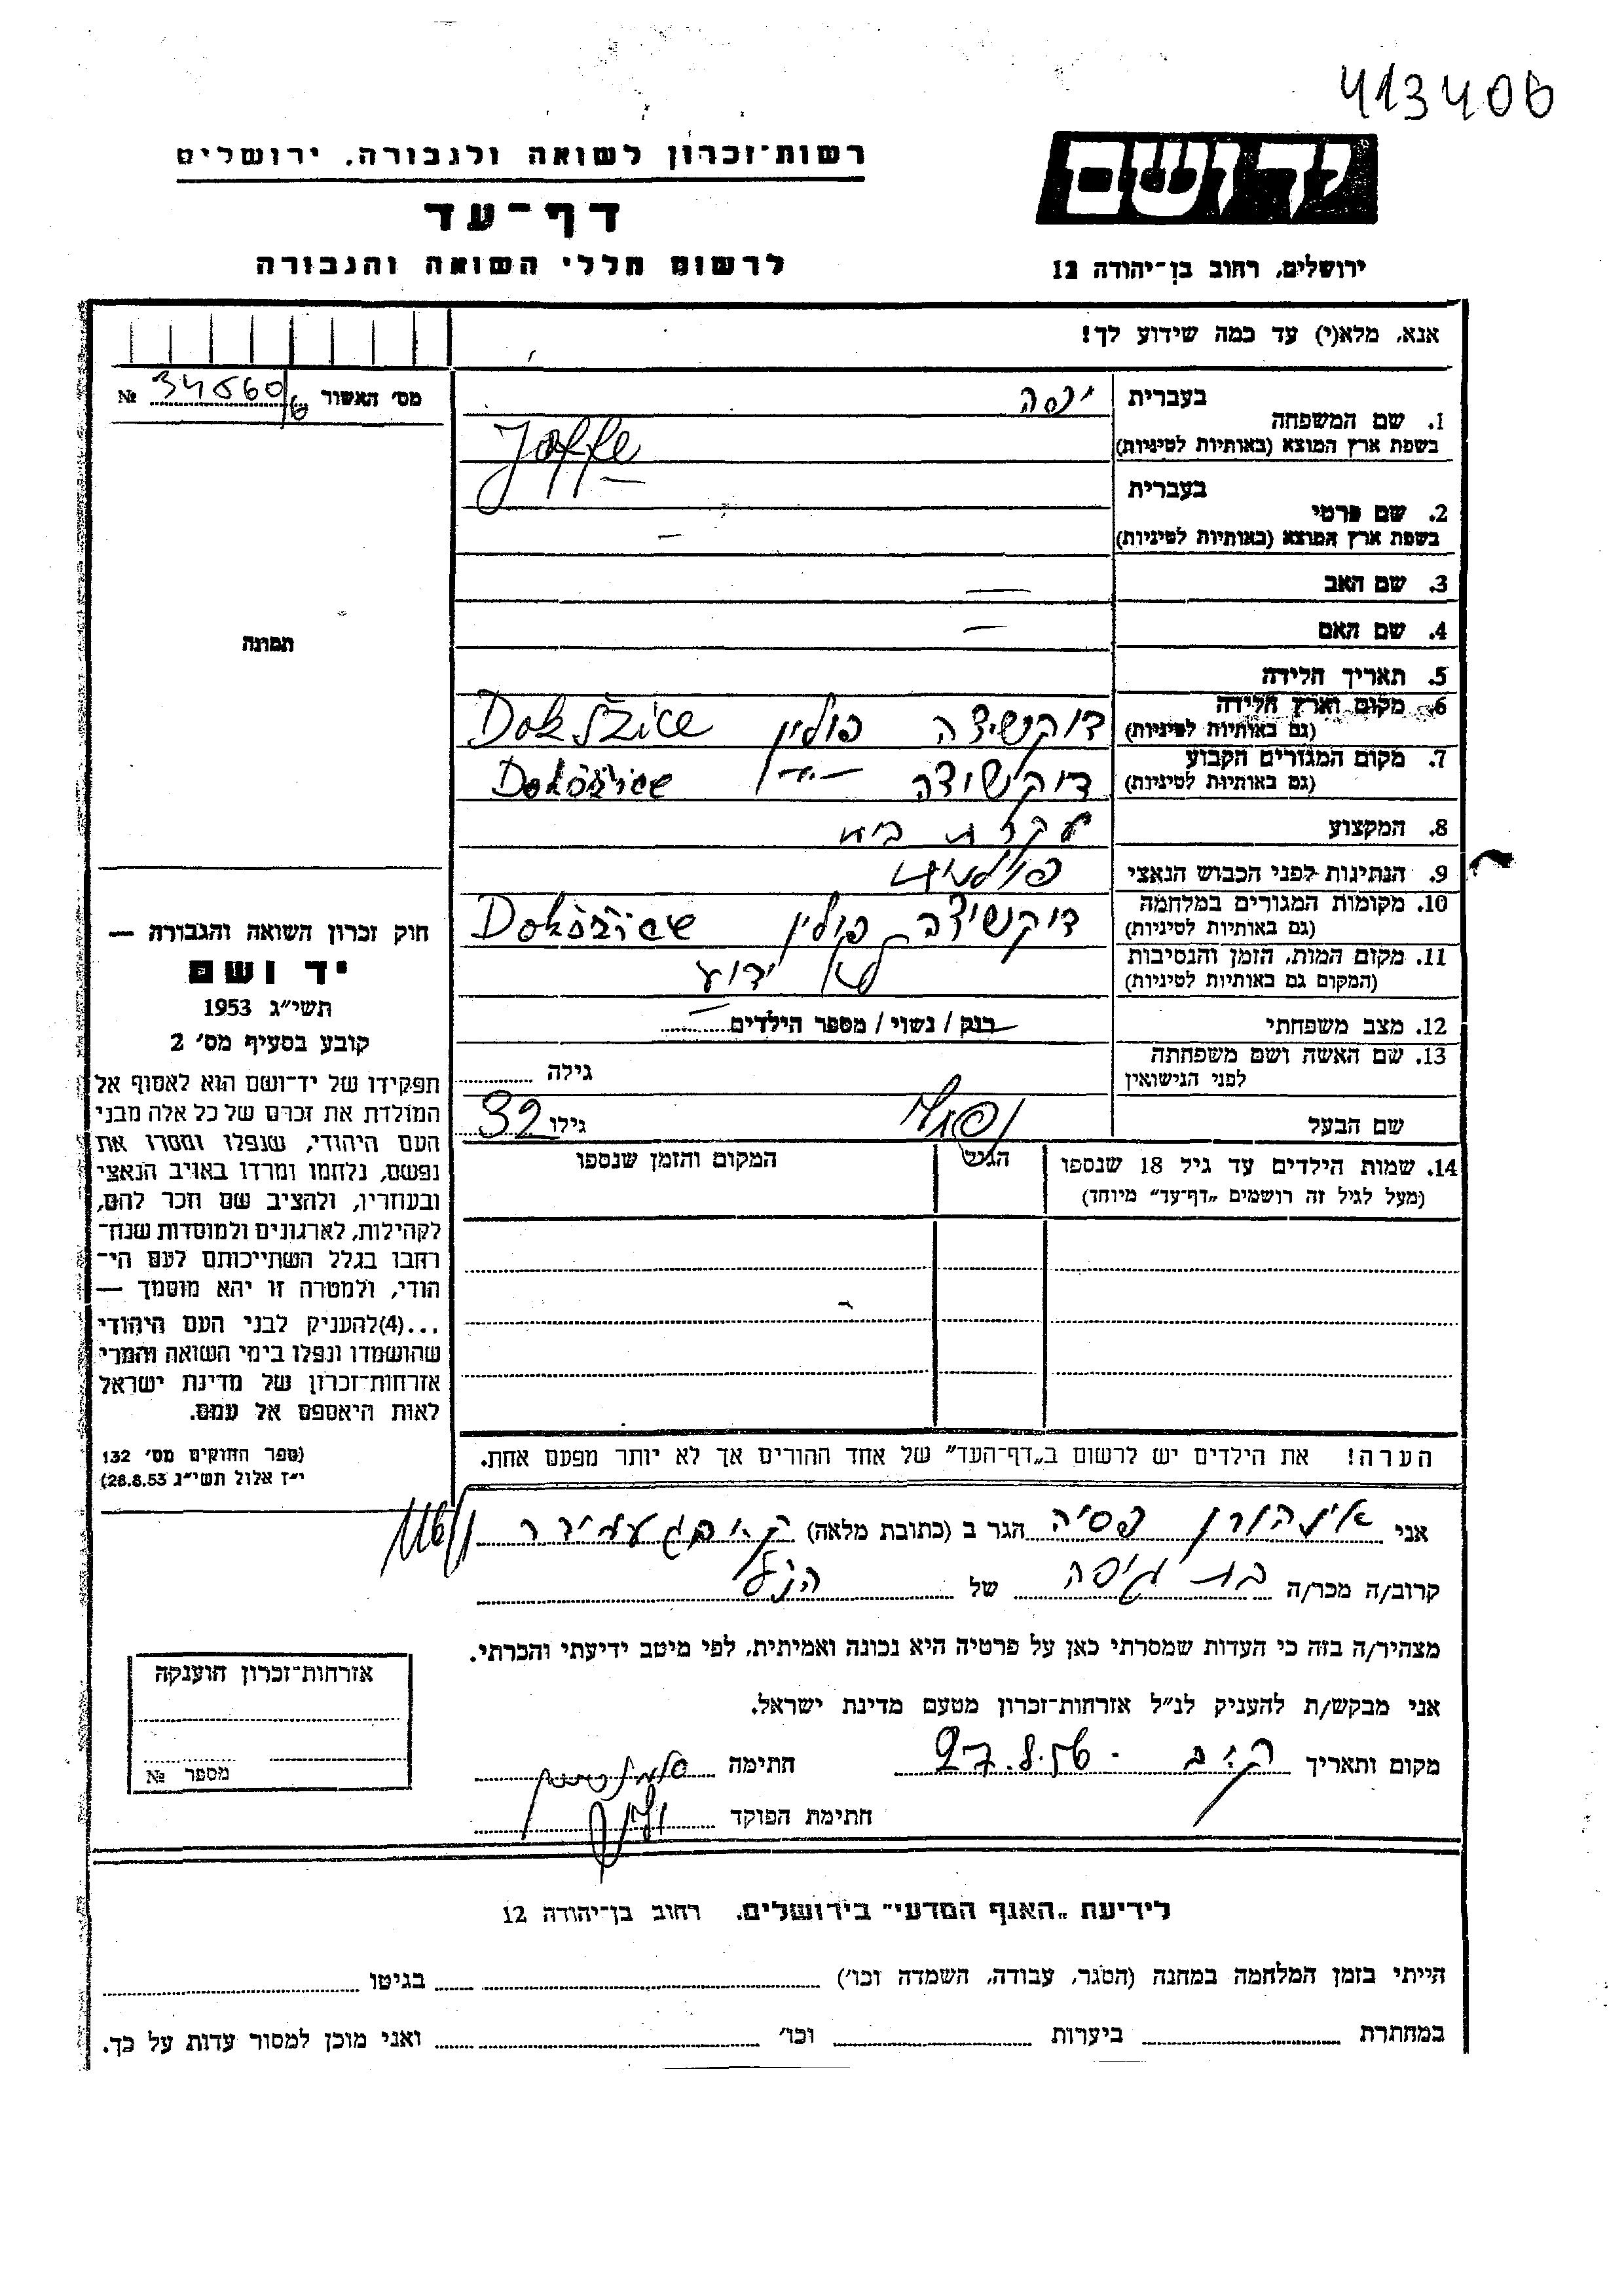 413406
רשות־זכרון לשואה ולגבורה, ירושלים
ידושם
דף־עד
לרשום חללי השואה והגבורה
ירושלים, רחוב בן־יהודה 12
אנא, מלא(י) עד כמה שידוע לך!
מס׳ האשור 34560/6 №
בעברית יפה
1. שם המשפחה
בשפת ארץ המוצא (באותיות לטיניות) Joffe
בעברית
2. שם פרטי
בשפת ארץ המוצא (באותיות לטיניות) —
3. שם האב —
4. שם האם —
תמונה
5. תאריך הלידה
6. מקום וארץ הלידה
(גם באותיות לטיניות) דוקשיצה פולין Dokszice
7. מקום המגורים הקבוע
(גם באותיות לטיניות) דוקשיצה —"— Dokszice
8. המקצוע עקרת בית
9. הנתינות לפני הכבוש הנאצי פולנית
10. מקומות המגורים במלחמה
(גם באותיות לטיניות) דוקשיצה פולין Dokszice
11. מקום המות, הזמן והנסיבות
(המקום גם באותיות לטיניות) לא ידוע
12. מצב משפחתי רווק / נשוי / מספר הילדים —
13. שם האשה ושם משפחתה
לפני הנישואין גילה
שם הבעל גילו 32
14. שמות הילדים עד גיל 18 שנספו הגיל המקום והזמן שנספו
(מעל לגיל זה רושמים „דף־עד” מיוחד)
חוק זכרון השואה והגבורה —
יד ושם
תשי״ג 1953
קובע בסעיף מס׳ 2
תפקידו של יד־ושם הוא לאסוף אל
המולדת את זכרם של כל אלה מבני
העם היהודי, שנפלו ומסרו את
נפשם, נלחמו ומרדו באויב הנאצי
ובעוזריו, ולהציב שם וזכר להם,
לקהילות, לארגונים ולמוסדות שנח־
רבו בגלל השתייכותם לעם הי־
הודי, ולמטרה זו יהא מוסמך —
...(4)להעניק לבני העם היהודי
שהושמדו ונפלו בימי השואה והמרי
אזרחות־זכרון של מדינת ישראל
לאות היאספם אל עמם.
(ספר החוקים מס׳ 132
י״ז אלול תשי״ג 28.8.53)
הערה! את הילדים יש לרשום ב„דף־העד” של אחד ההורים אך לא יותר מפעם אחת.
אני איינהורן פסיה הגר ב (כתובת מלאה)
קרוב/ה מכר/ה בת גיסה של הנ״ל
מצהיר/ה בזה כי העדות שמסרתי כאן על פרטיה היא נכונה ואמיתית, לפי מיטב ידיעתי והכרתי.
אני מבקש/ת להעניק לנ״ל אזרחות־זכרון מטעם מדינת ישראל.
אזרחות־זכרון הוענקה
מספר №
מקום ותאריך 27.8.56 חתימה
חתימת הפוקד
לידיעת „האגף המדעי” בירושלים, רחוב בן־יהודה 12
הייתי בזמן המלחמה במחנה (הסגר, עבודה, השמדה וכו׳) בגיטו
במחתרת ביערות וכו׳ ואני מוכן למסור עדות על כך.